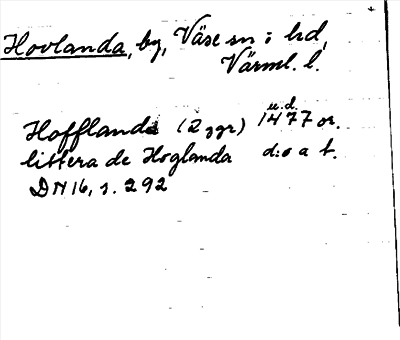 Hovlanda, by, Väse sn i hd,
Värml. l.
u.d.
Hofflanda (2 ggr) 1477 or.
littera de Hoglanda d:o a t.
DN 16, s. 292